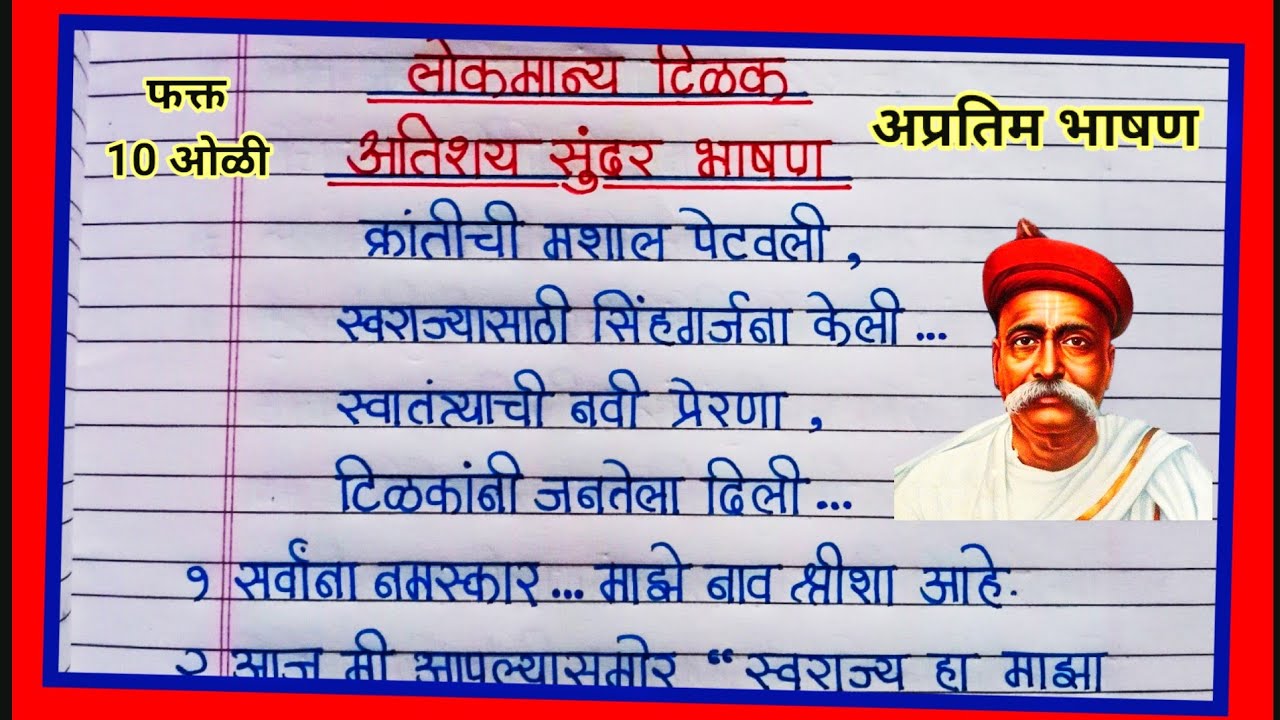 लोकमान्य टिळक
फक्त
10 ओळी
अप्रतिम भाषण
अतिशय सुंदर भाषण
क्रांतीची मशाल पेटवली ,
स्वराज्यासाठी सिंहगर्जना केली ...
स्वातंत्र्याची नवी प्रेरणा ,
टिळकांनी जनतेला दिली ...
१ सर्वांना नमस्कार... माझे नाव क्ष्रीशा आहे.
२ आज मी आपल्यासमोर “ स्वराज्य हा माझा